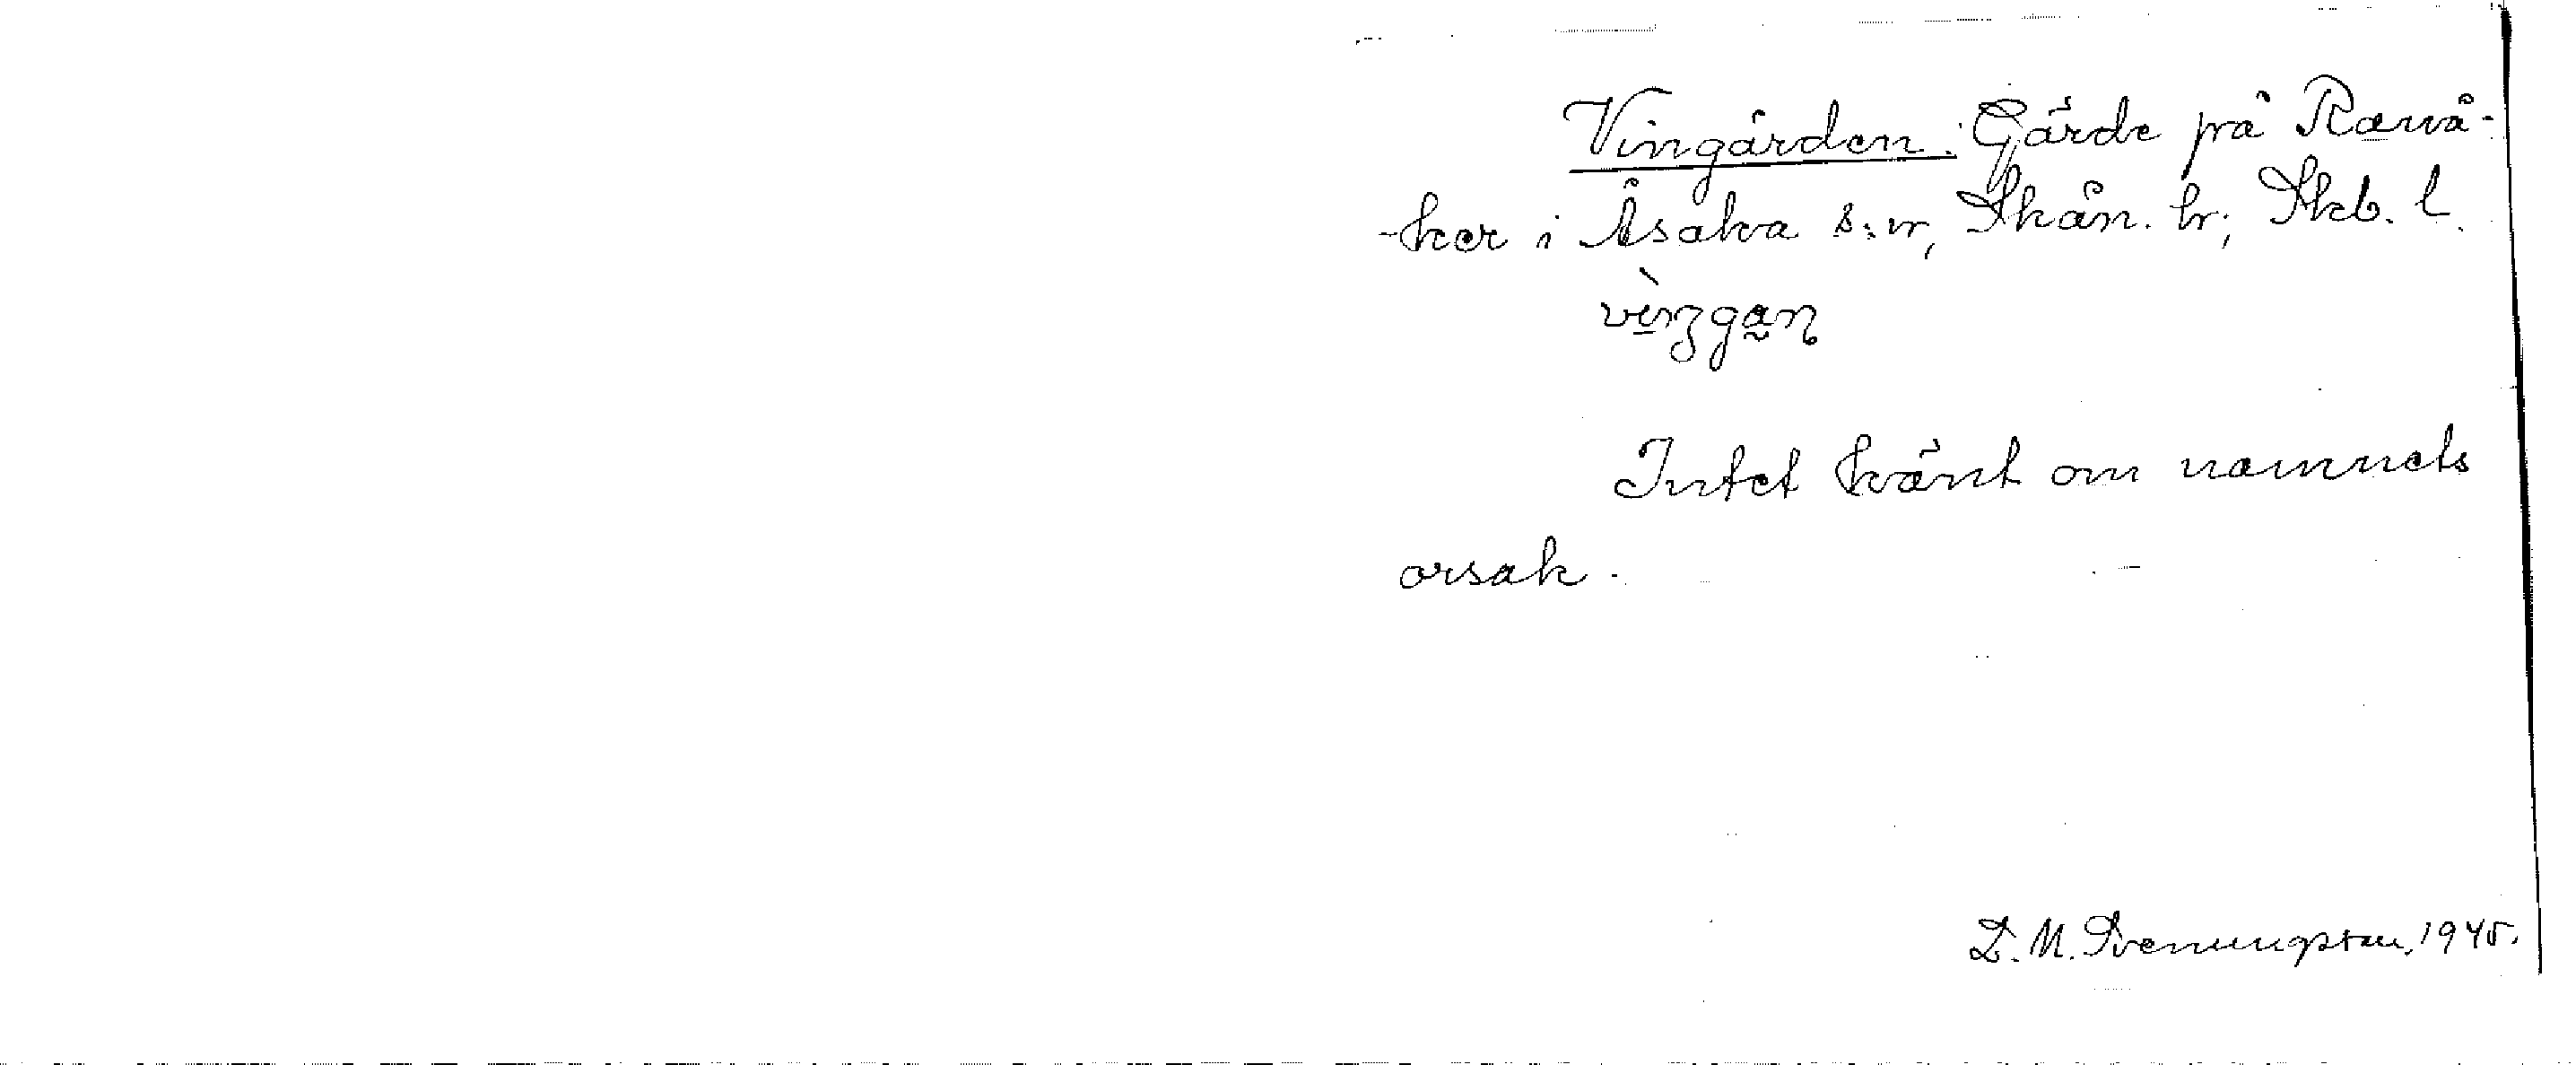 Vingården. Gärde på Ranå-
-ker i Åsaka s:n, Skån. hr; Skb. l.
Intet känt om namnets
orsak.
D. M. Svenungsson. 1945.